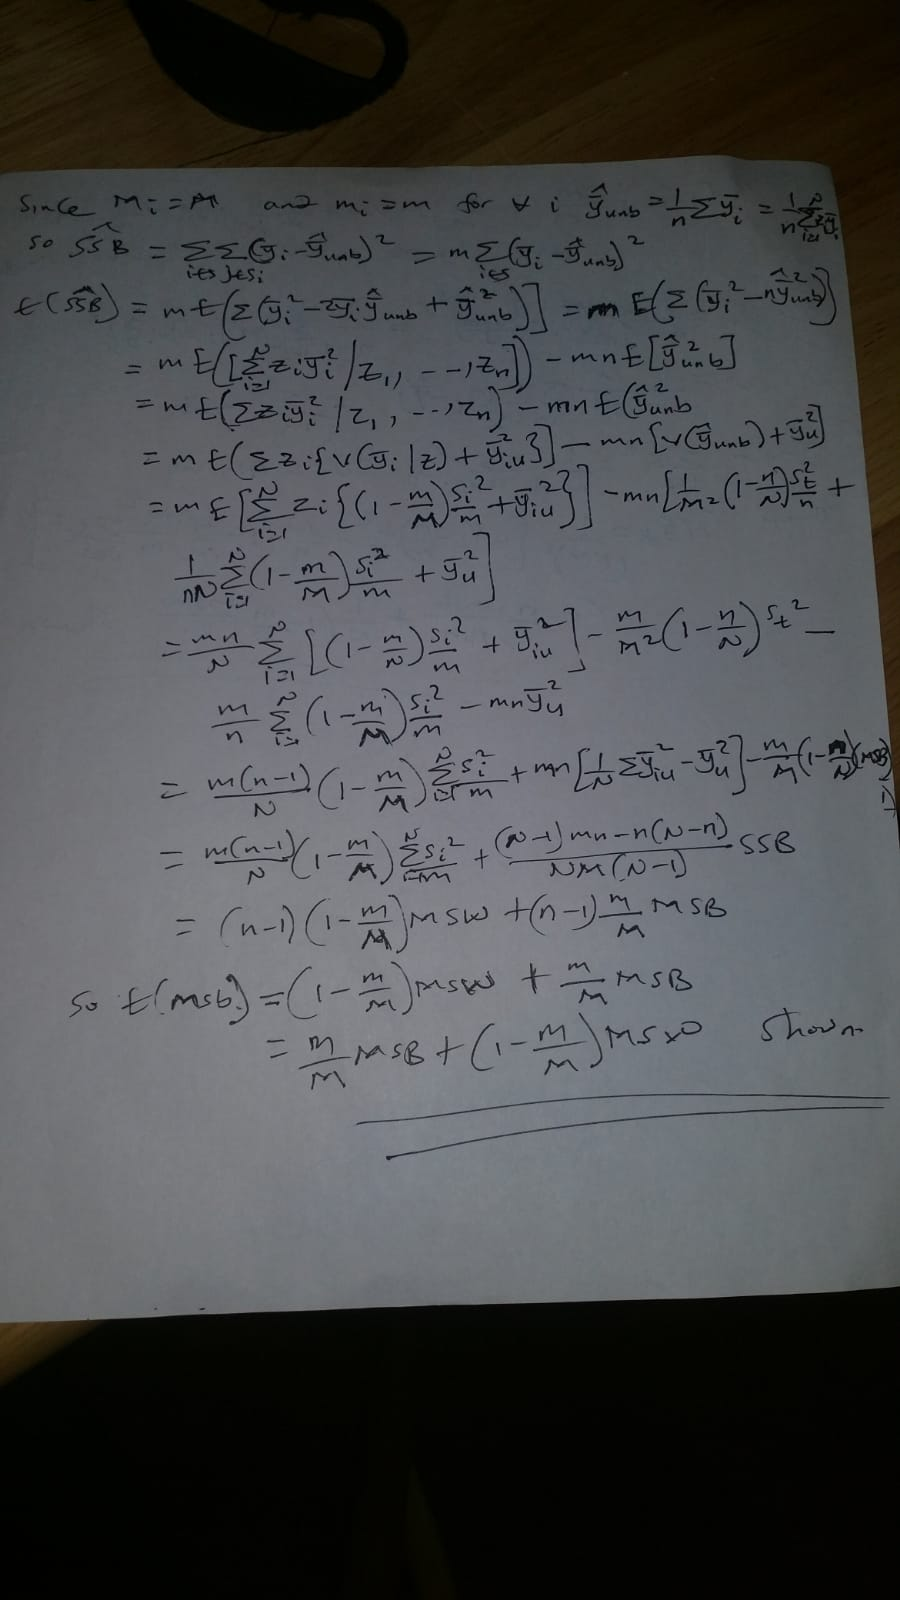 Since Mi = M and mi = m for ∀ i ŷ̄unb = 1/n Σ ȳi = 1/n Σ_{i=1}^N zi ȳi
so SŜB = Σ_{i∈s} Σ_{j∈si} (ȳi - ŷ̄unb)² = m Σ_{i∈s} (ȳi - ŷ̄unb)²
E(SŜB) = m E[Σ(ȳi² - 2ȳi ŷ̄unb + ŷ̄²unb)] = m E(Σ(ȳi² - nŷ̄²unb))
= m E([Σ_{i=1}^N zi ȳi² / z1, --, zn]) - mn E[ŷ̄²unb]
= m E(Σ zi ȳi² | z1, --, zn) - mn E(ŷ̄²unb
= m E(Σ zi {V(ȳi | z) + ȳ²iu}] - mn [V(ŷ̄unb) + ȳ²u]
= m E[Σ_{i=1}^N zi {(1 - m/M) si²/m + ȳiu²}] - mn [1/M² (1 - n/N) St²/n +
1/nN Σ_{i=1}^N (1 - m/M) si²/m + ȳ²u]
= mn/N Σ_{i=1}^N [(1 - m/N) si²/m + ȳ²iu] - m/M² (1 - n/N) St² -
m/n Σ_{i=1}^N (1 - m/M) si²/m - mnȳ²u
= m(n-1)/N (1 - m/M) Σ_{i=1}^N si²/m + mn [1/N Σ ȳ²iu - ȳ²u] - m/M (1 - n/N)(MSB)
= m(n-1)/N (1 - m/M) Σ^N si²/m + (N-1)mn - n(N-n)/NM(N-1) SSB
= (n-1)(1 - m/M) MSW + (n-1) m/M MSB
So E(msb) = (1 - m/M) MSW + m/M MSB
= m/M MSB + (1 - m/M) MSW shown